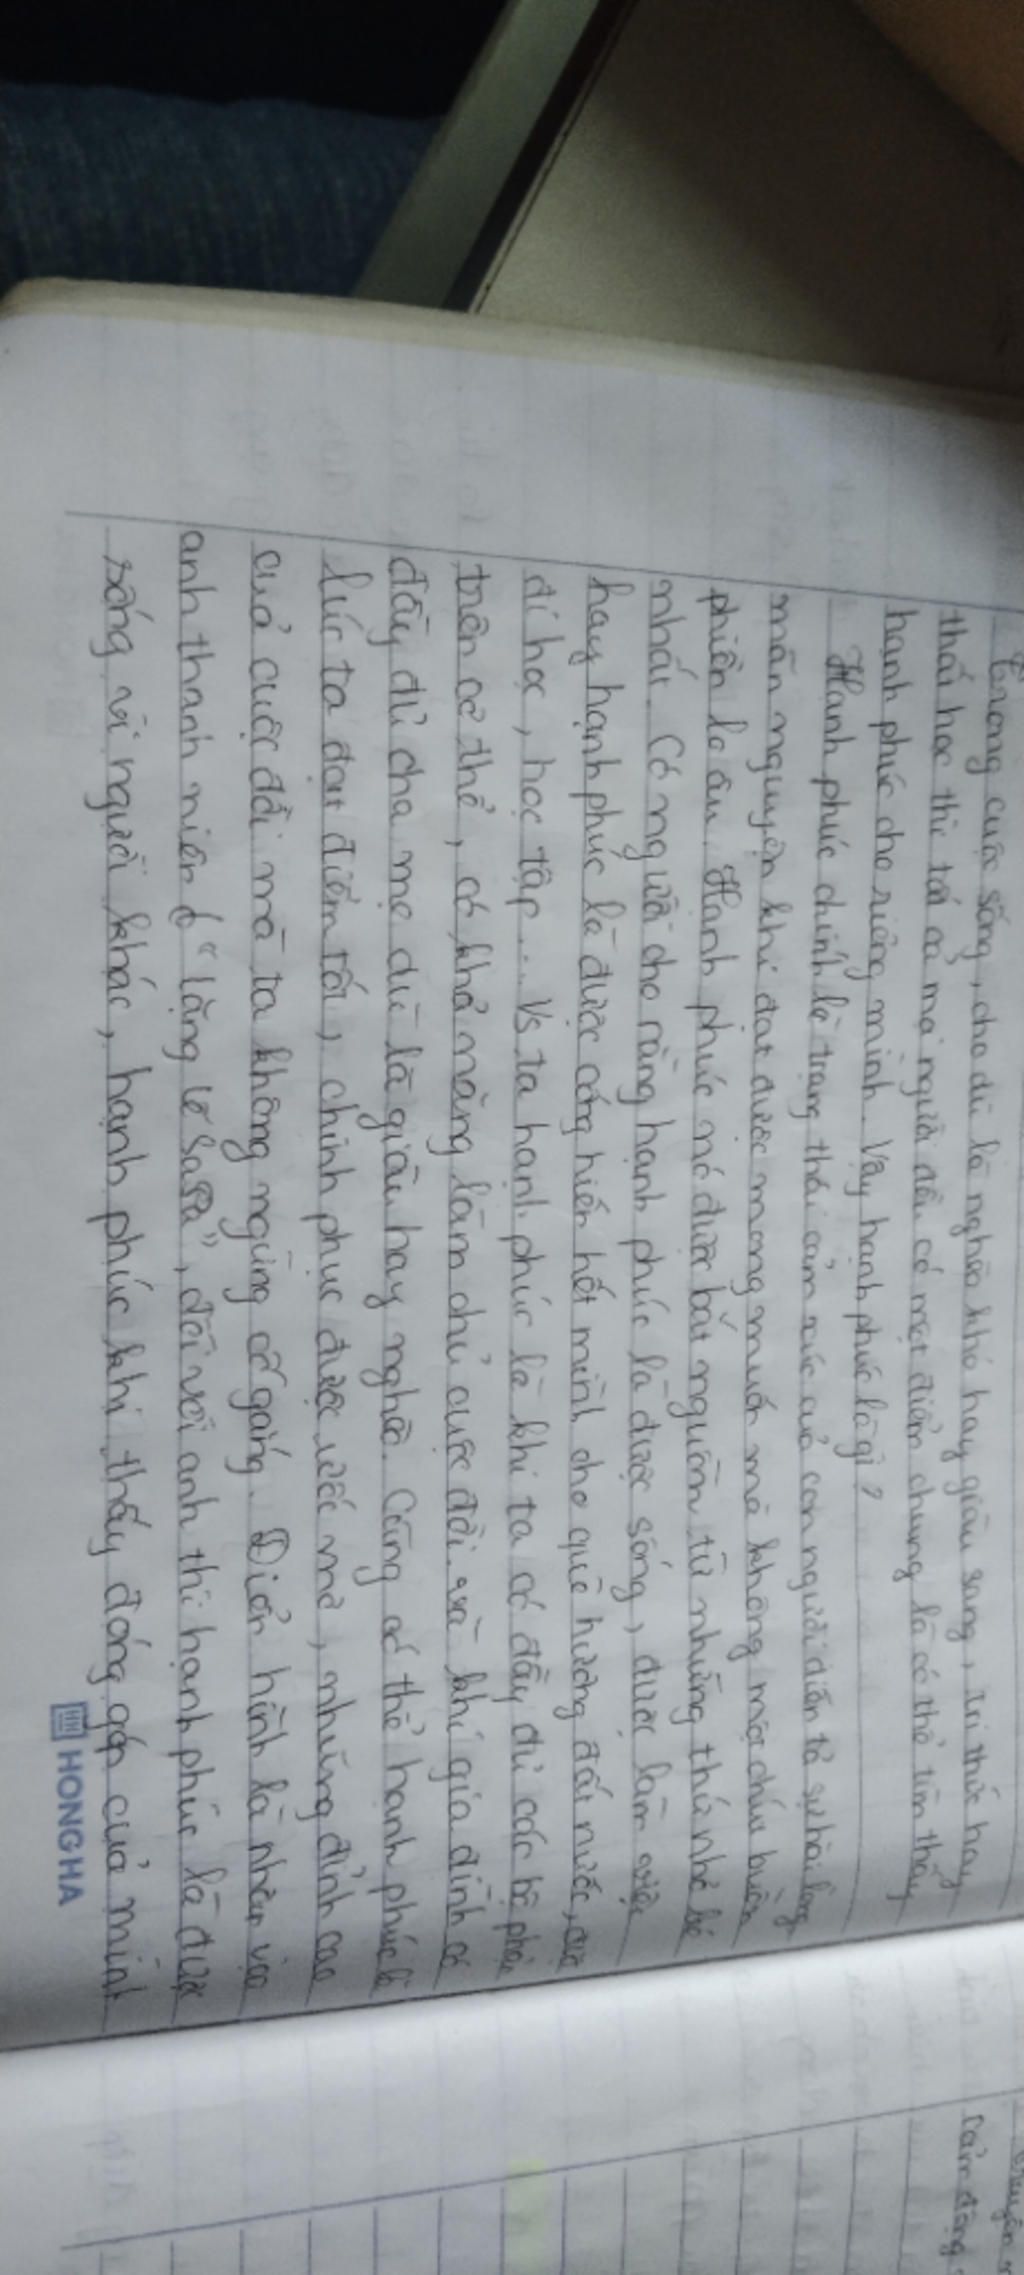 Trong cuộc sống, cho dù là nghèo khó hay giàu sang, tri thức hay
thất học thì tất cả mọi người đều có một điểm chung là có thể tìm thấy
hạnh phúc cho riêng mình. Vậy hạnh phúc là gì?
Hạnh phúc chính là trạng thái cảm xúc của con người diễn tả sự hài lòng
mãn nguyện khi đạt được mong muốn mà không một chút buồn
phiền lo âu. Hạnh phúc nó được bắt nguồn từ những thứ nhỏ bé
nhất. Có người cho rằng hạnh phúc là được sống, được làm việc
hay hạnh phúc là được cống hiến hết mình cho quê hương đất nước, được
đi học, học tập... Vs ta hạnh phúc là khi ta có đầy đủ các bộ phận
trên cơ thể, có khả năng làm chủ cuộc đời. và khi gia đình có
đầy đủ cha mẹ dù là giàu hay nghèo. Cũng có thể hạnh phúc là
lúc ta đạt điểm tốt, chinh phục được ước mơ, những đỉnh cao
cuả cuộc đời mà ta không ngừng cố gắng. Điển hình là nhân vật
anh thanh niên "lặng lẽ SaPa", đối với anh thì hạnh phúc là được
sống vì người khác, hạnh phúc khi thấy đóng góp cuả mình
HONG HA
Cảm động